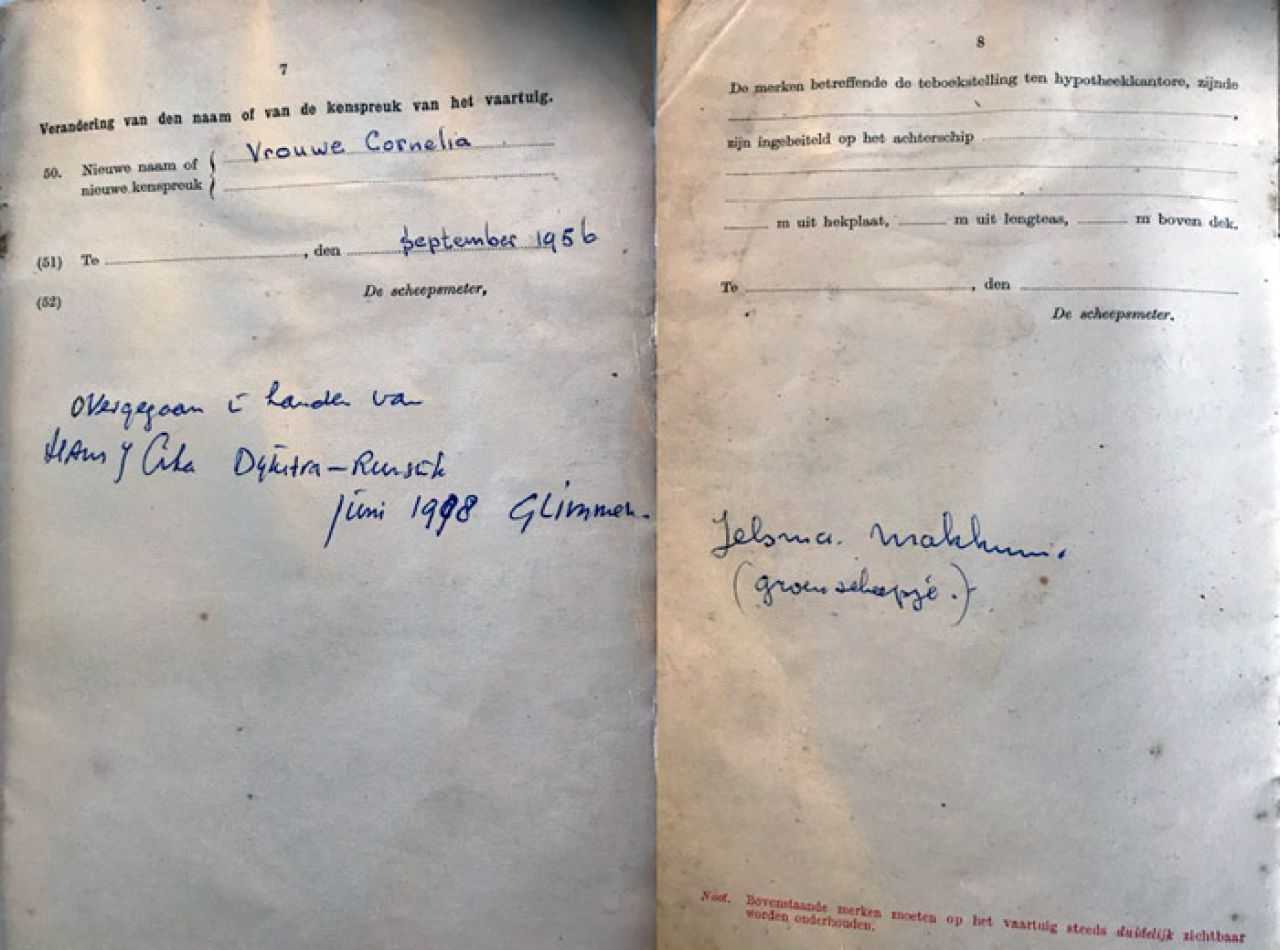 7
Verandering van den naam of van de kenspreuk van het vaartuig.
50. Nieuwe naam of
nieuwe kenspreuk
Vrouwe Cornelia
(51) Te , den September 1956
(52) De scheepsmeter,
Overgegaan i handen van
Hans
Dijkstra-
juni 1998 Glimmen.
8
De merken betreffende de teboekstelling ten hypotheekkantore, zijnde
,
zijn ingebeiteld op het achterschip
m uit hekplaat, m uit lengteas, m boven dek.
Te , den
De scheepsmeter,
Jelsma. Makkum.
(groen scheepje.)
Noot. Bovenstaande merken moeten op het vaartuig steeds duidelijk zichtbaar
worden onderhouden.